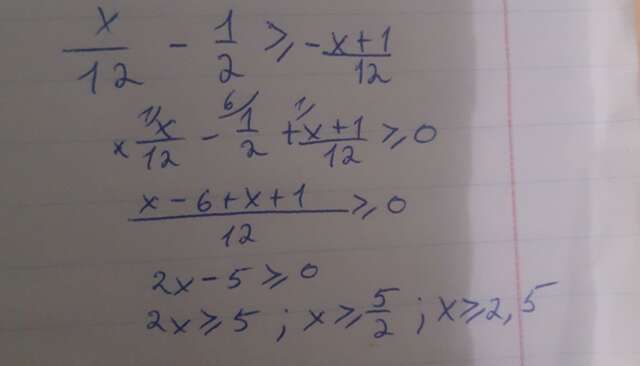 x/12 - 1/2 ≥ -x+1/12
x 1/x/12 - 6/1/2 + 1/x+1/12 ≥ 0
x-6+x+1/12 ≥ 0
2x-5 ≥ 0
2x ≥ 5 ; x ≥ 5/2 ; x ≥ 2,5